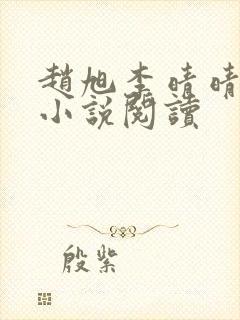 趙旭李晴晴
小說閱讀
殷紫